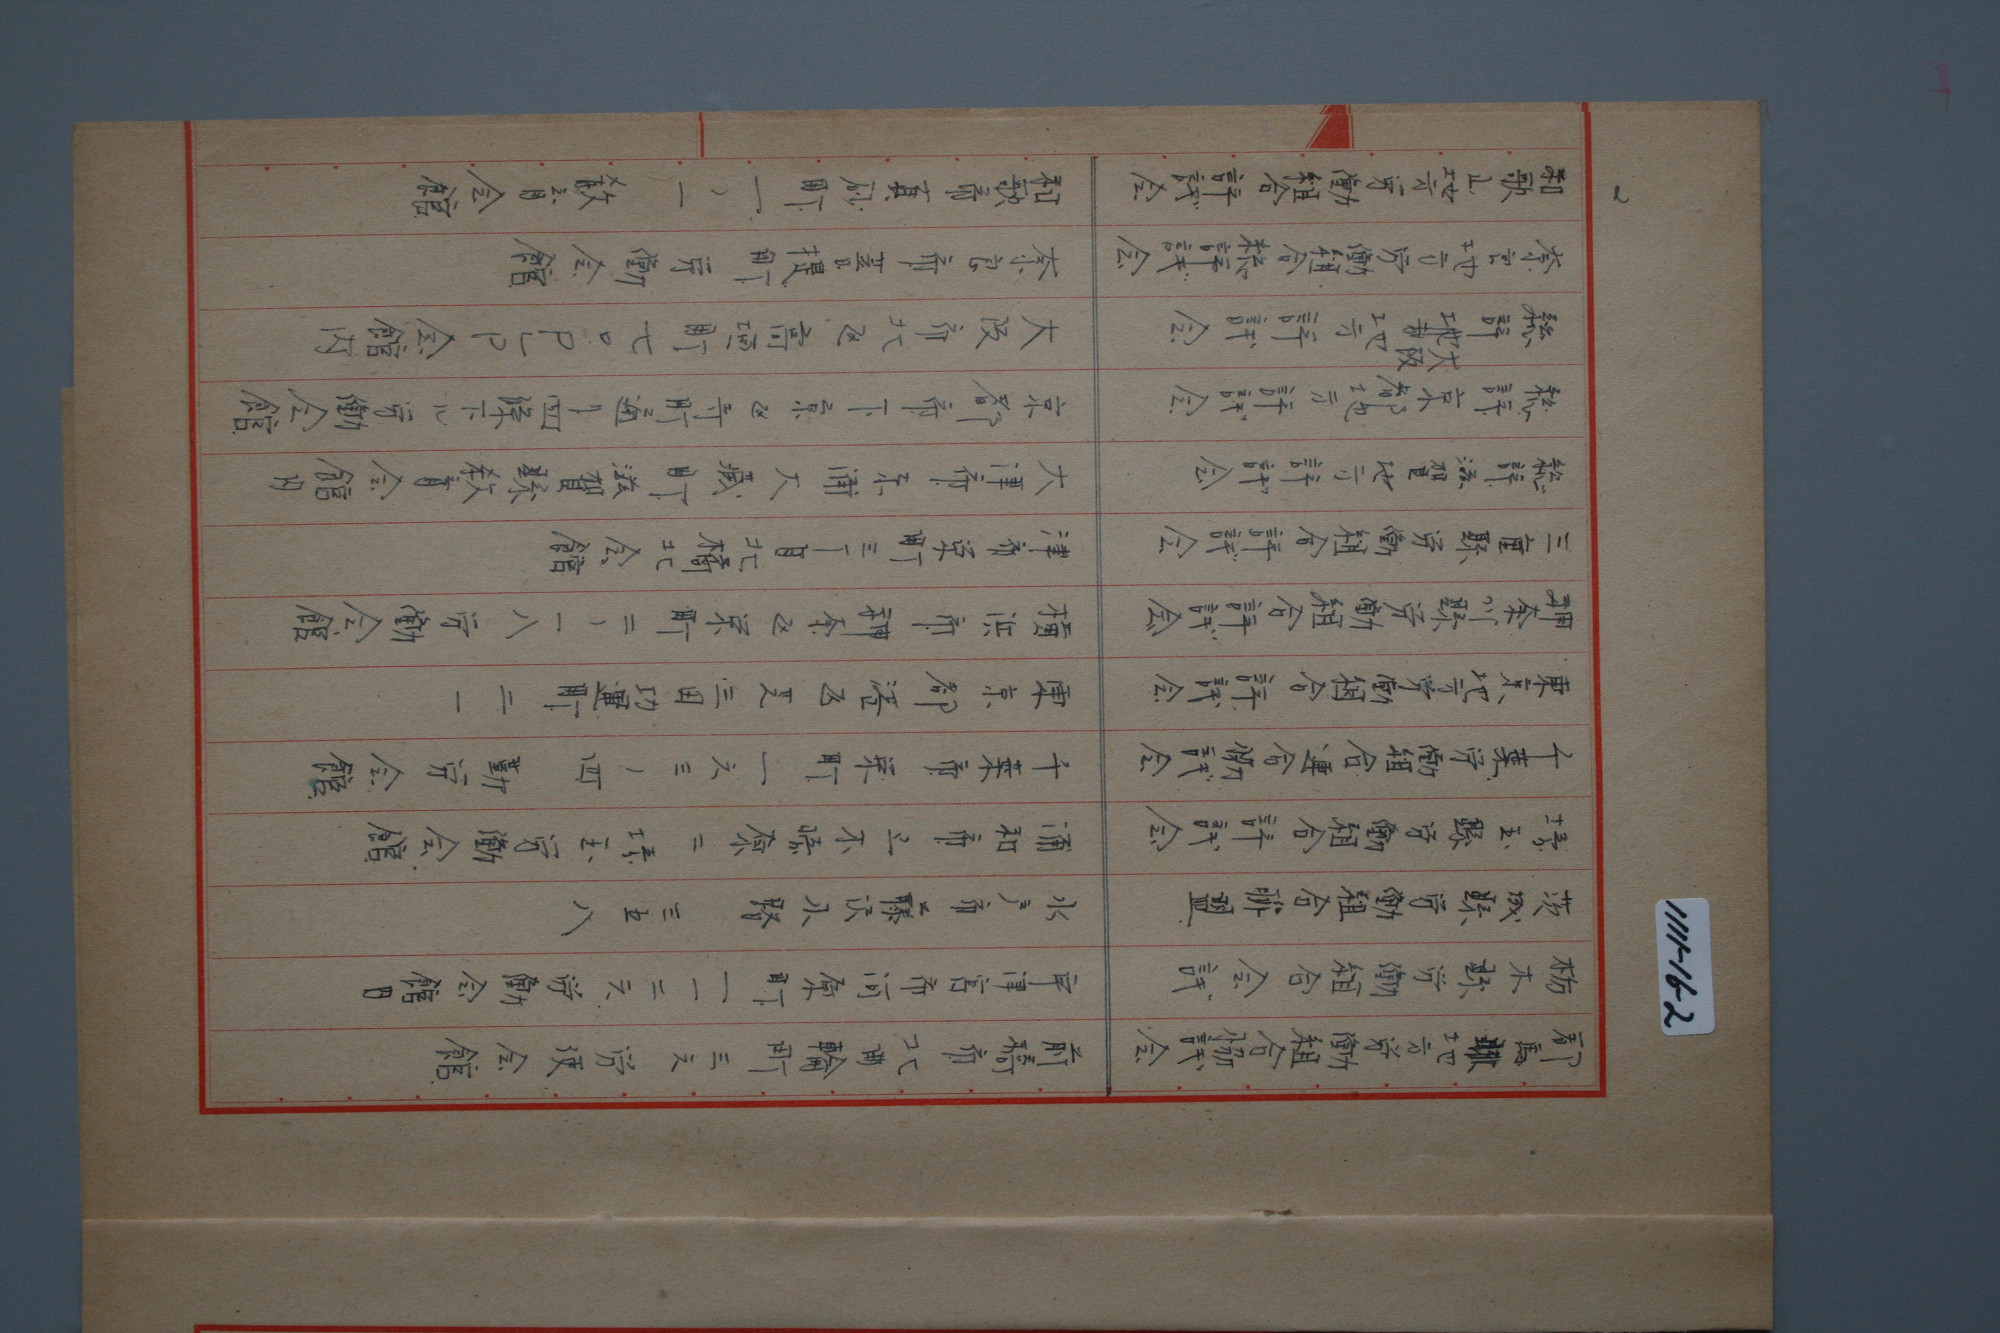 群馬地方労働組合協議会　前橋市北曲輪町三六労使会館
栃木縣労働組合会議　宇津宮市河原町一一二六労働会館内
茨城縣労働組合聯盟　水戸市藤沢小路三五八
埼玉縣労働組合評議会　浦和市上木崎二埼玉労働会館
千葉労働組合連合協議会　千葉市栄町一六三ノ四勤労会館
東京地方労働組合評議会　東京都港区芝三田功運町二一
神奈川縣労働組合評議会　横浜市神奈区栄町二ノ一八労働会館
三重縣労働組合評議会　津市栄町三丁目北橋北会館
総評滋賀地方評議会　大津市東浦大蔵町滋賀縣教育会館内
総評京都地方評議会　京都市下京区寺町通り四條下ル労働会館
総評大阪地方評議会　大阪市北区高垣町七〇PLP会館内
奈良地方労働組合総評議会　奈良市菩提町労働会館
和歌山地方労働組合評議会　和歌市真砂町一ノ一教育会館
2
1111-16-2